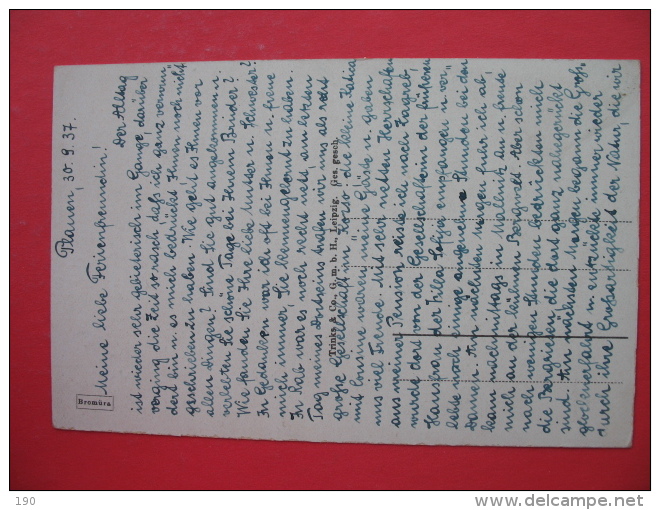 Plauen, 30.9.37.
Meine liebe Ferienfreundin!
Der Alltag
ist wieder sehr gebieterisch im Gange, darüber
verging die Zeit so rasch, daß ich ganz
dert bin u. es mich bedrückt Ihnen noch nicht
geschrieben zu haben. Wie geht es Ihnen vor
allen Dingen? Sind Sie gut angekommen u.
verlebten Sie schöne Tage bei Ihrem Bruder?
Wie fanden Sie Ihre liebe Mutter u. Schwester?
In Gedanken war ich oft bei Ihnen u. freue
mich immer, Sie kennengelernt zu haben.
In Rab war es noch recht nett am letzten
Tag meines Dortseins saßen wir uns als recht
große Gesellschaft im Korso, die kleine Katia
mit Cousine waren meine Gäste u. gaben
uns viel Freude. Mit sehr netten Herrschaften
aus meiner Pension reiste ich nach Zagreb,
wurde dort von der Gesellschafterin der früheren
Hausfrau der Villa empfangen u. ver-
lebte noch einige angenehme Stunden bei den
Damen. Am nächsten Morgen fuhr ich ab,
kam nachmittags in Mallnitz an u. freute
mich an der schönen Bergwelt. Aber schon
nach wenigen Stunden bedrückten mich
die Bergriesen, die dort ganz nahegerückt
sind. Am nächsten Morgen begann die Groß-
glocknerfahrt u. entzückte immer wieder
durch ihre Großartigkeit der Natur, die wir
Trinks & Co., G. m. b. H., Leipzig. Ges. gesch.
Bromüra
190
delcampe.net